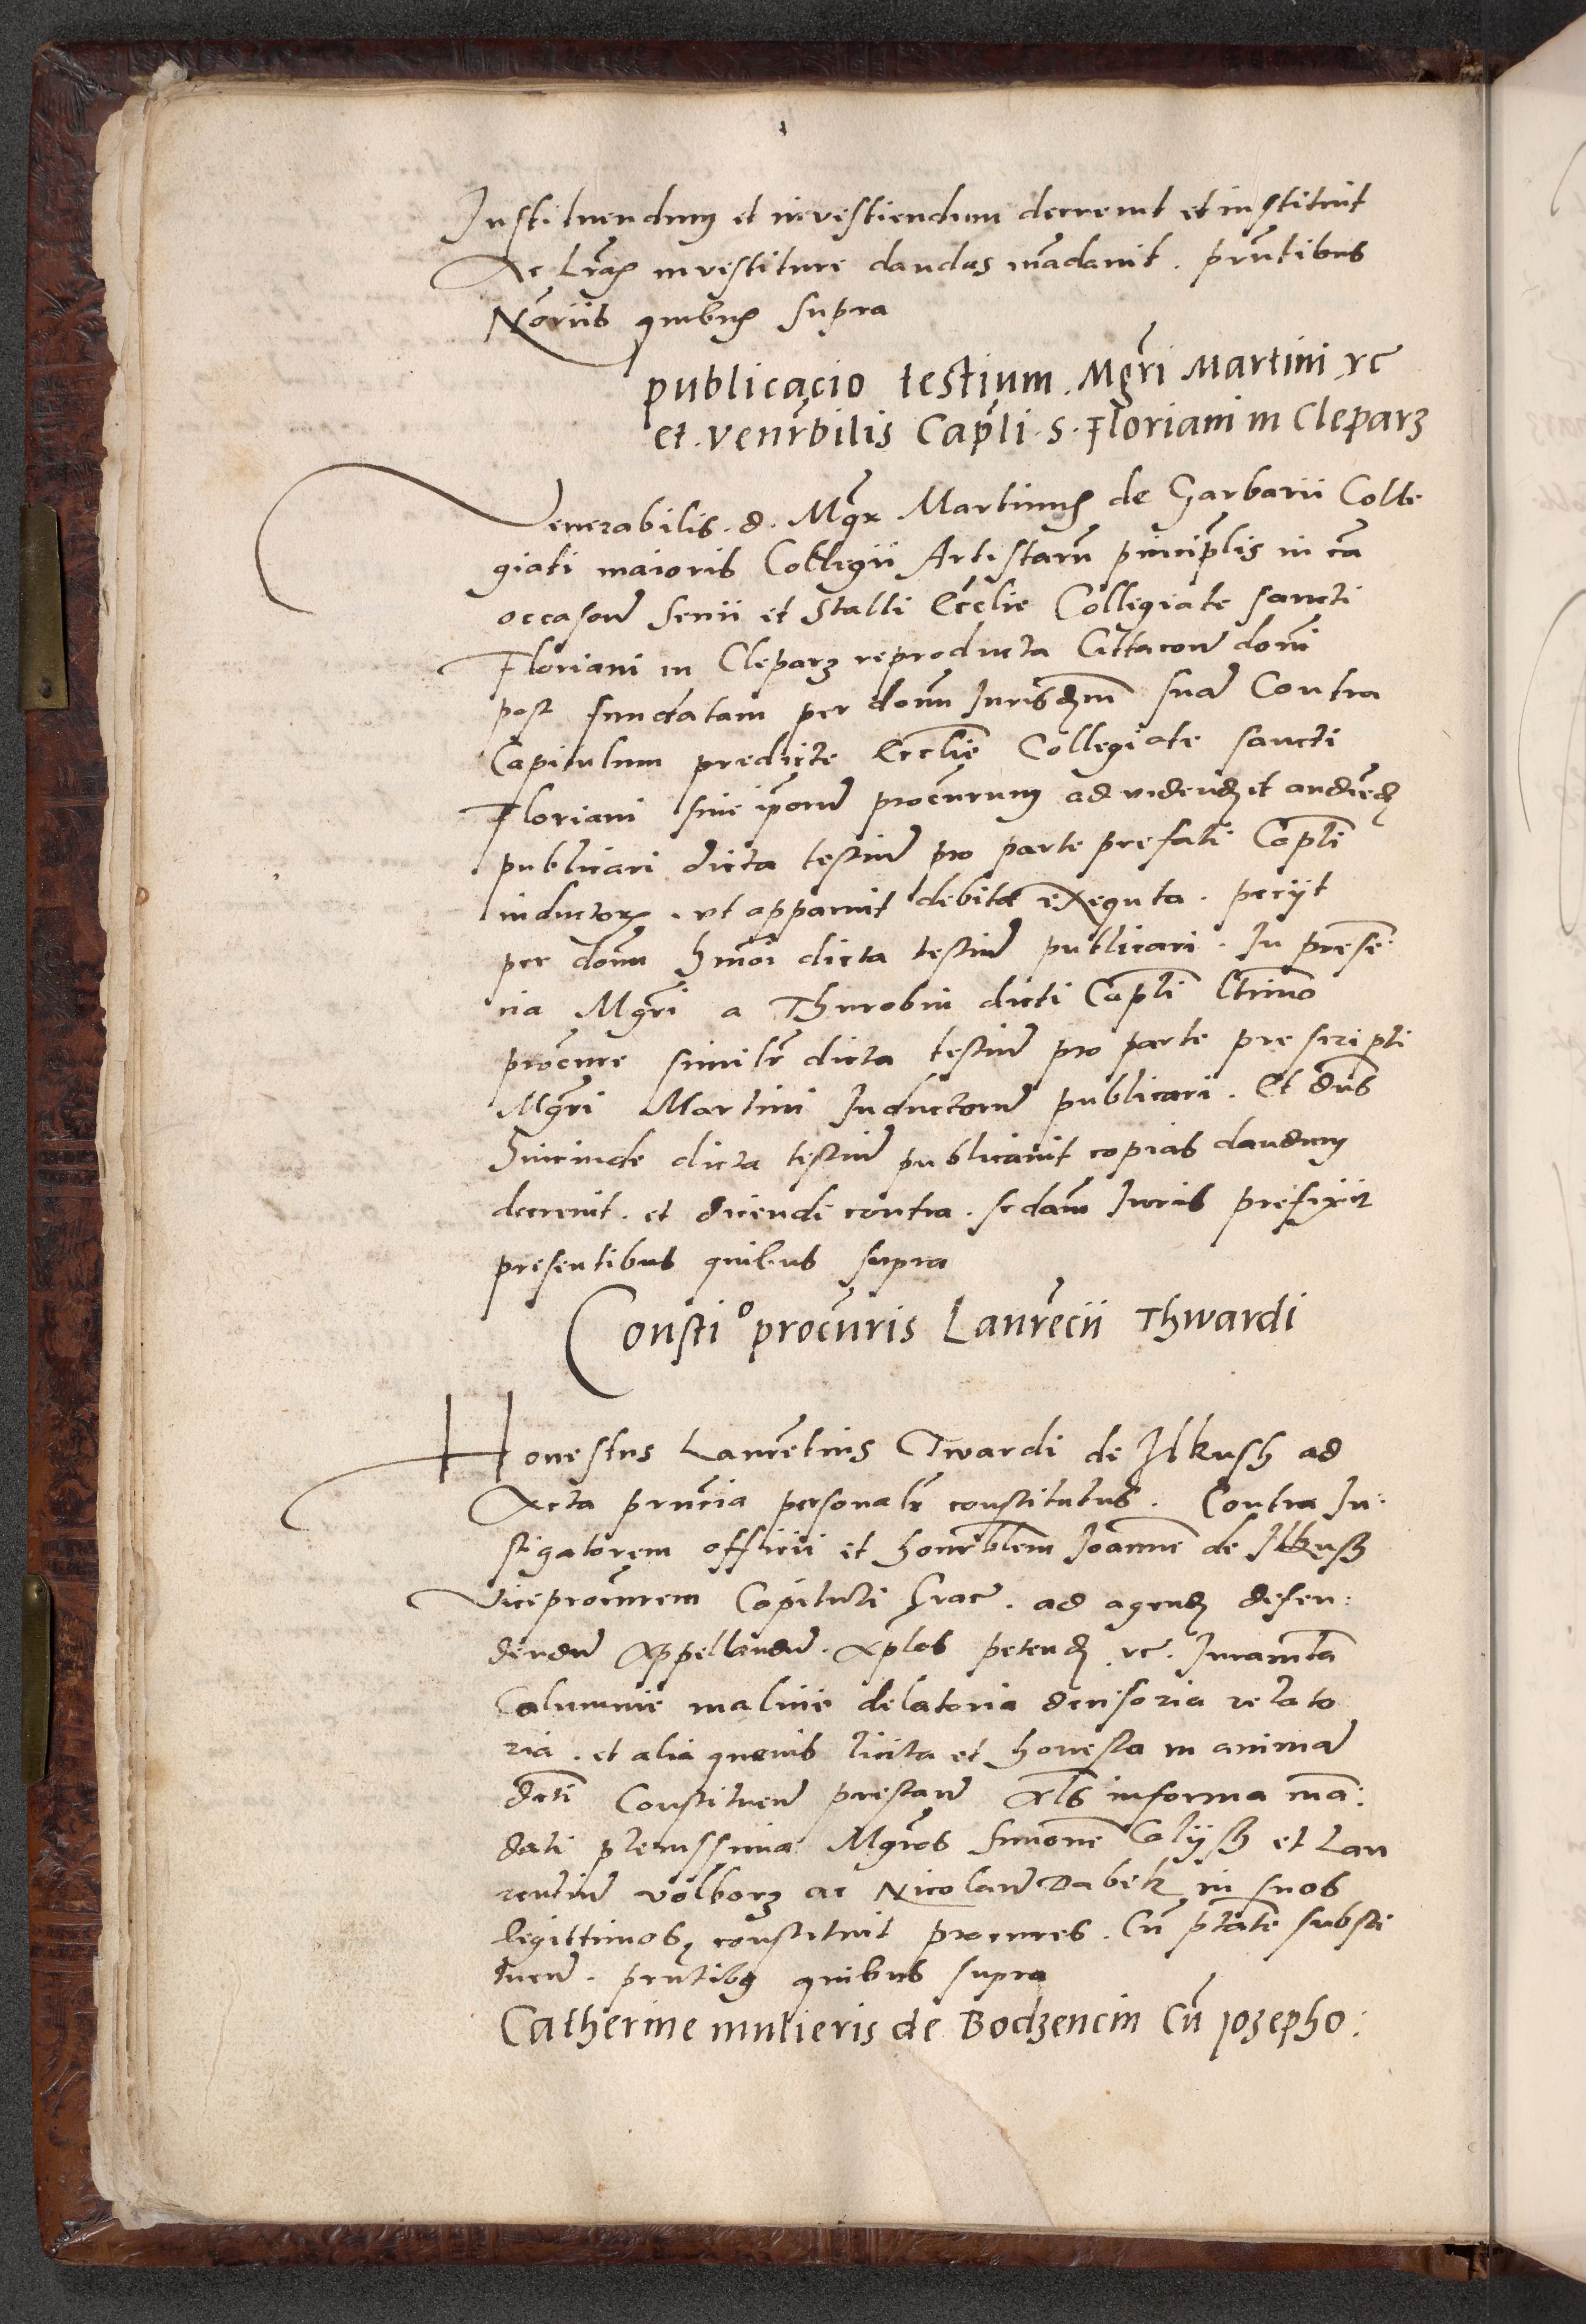 Instituendum et investiendum decrevit et instituit
Ac l̃ras investiture dandas mãdavit . prñtibus
Nõriis quibus supra
publicacio testium . Mgr̃i Martini rc̃
et . venr̃bilis Capl̃i . S . Floriani in Cleparz
Venerabilis . d . Mgr̃ Martinus de Garbarii Colle
giati maioris Collegii Artistarũ principl̃is in cã
occasonẽ Senii et Stalli Ecc̃lie Collegiate sancti
Floriani in Cleparz reproducta Cittaconẽ domĩ
post fundatam per domĩ Jurisd̃m suã Contra
Capitulum predicte Eccl̃ie Collegiate sancti
Floriani sive ip̃orũ procũrum ad videnđ et audiẽđ
publicari dicta testiũ pro parte prefati Capl̃i
inductoꝝ . ut apparuit debite exequta . peciit
per domĩ hmõi dicta testiũ publicari . In presẽ:
cia Mgr̃i a Thurobin dicti Capl̃i Ctimo
procũre similr̃ dicta testiũ pro parte prescripti
Mgr̃i Martini Inductorũ publicari . Et dñs
hincinde dicta testiũ publicavit copias dandum
decrevit . et dicendi contra . sc̃dam Juris prefixit
presentibus quibus supra
Consti° procũris Laurẽcii Thwardi
Honestus Laurẽtius Twardi de Ilkush ad
Acta prñcia personalr̃ constitutus . Contra In:
stigatorem officii et honrb̃lem Joannẽ de Ilkusz
Viceprocũrem Capituli Crac̃ . ad agenđ defen:
dendũ Appellandũ . Ap̃los petenđ . rc̃ . Juramt̃a
Calumnie malicie delatoria decisoria relato
ria . et alia quevis licita et honesta in animã
dc̃ti Constituen̄ prestan̄ Al̃s in forma mã:
dati plenissima Mgr̃os Simonẽ Calijsz et Lau
rentiũ Volborz ac Nicolaũ Dabek in suos
legittimos, constituit procures . Cũ ptãte substi
tuen̄ . prñtibꝰ quibus supra
Catherine mulieris de Bodzencin Cũ jozepho: